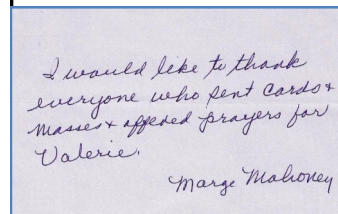 I would like to thank
everyone who sent cards +
Masses + offered prayers for
Valerie.
Marge Mahoney